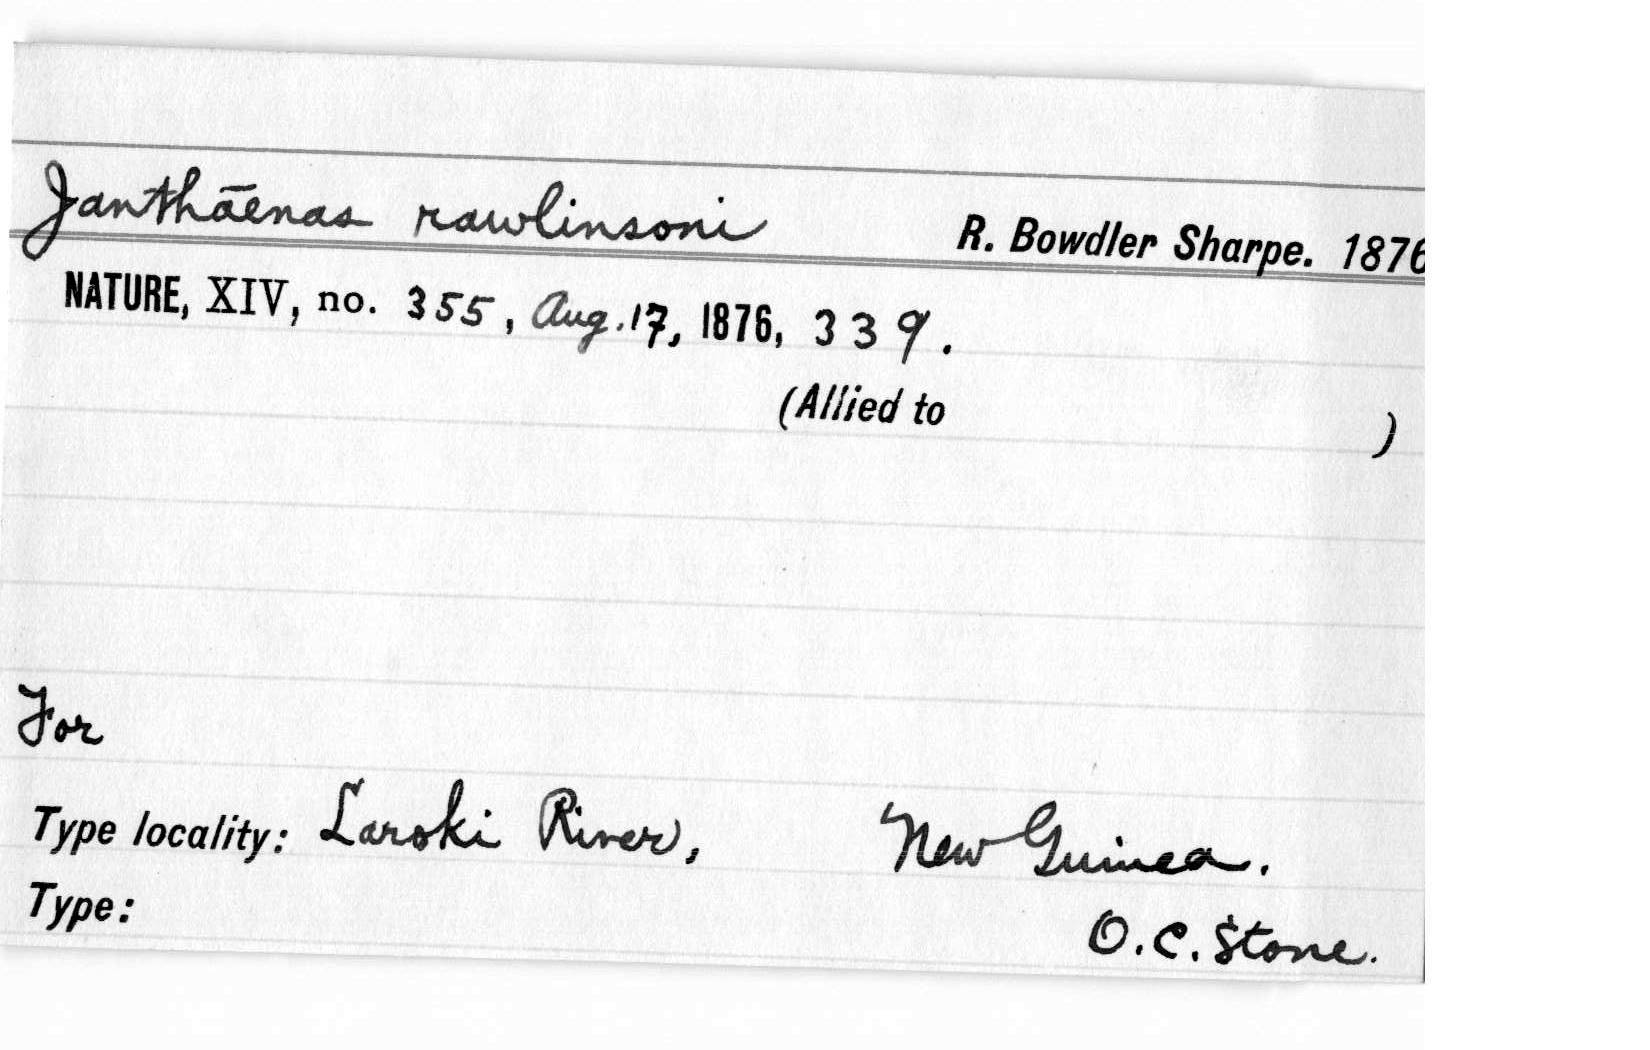 Janthāenas rawlinsoni R. Bowdler Sharpe. 1876
NATURE, XIV, no. 355, Aug. 17, 1876, 339.
(Allied to )
For
Type locality: Laroki River, New Guinea.
Type: O.C. Stone.